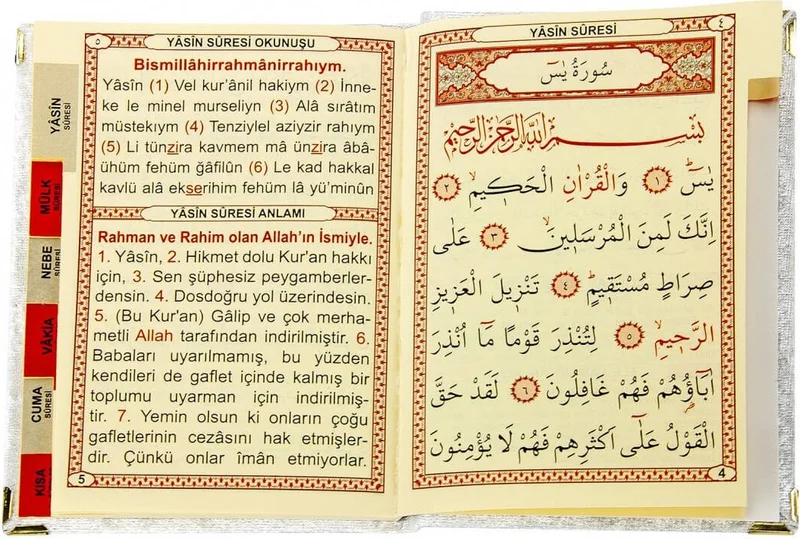 ٥
YÂSÎN SÛRESİ OKUNUŞU
Bismillâhirrahmânirrahıym.
Yâsîn (1) Vel kur’ânil hakiym (2) İnne-
ke le minel murseliyn (3) Alâ sırâtım
müstekıym (4) Tenziylel aziyzir rahıym
(5) Li tünzira kavmem mâ ünzira âbâ-
ühüm fehüm ğâfilûn (6) Le kad hakkal
kavlü alâ ekserihim fehüm lâ yü’minûn
YÂSÎN SÛRESİ ANLAMI
Rahman ve Rahim olan Allah’ın İsmiyle.
1. Yâsîn, 2. Hikmet dolu Kur'an hakkı
için, 3. Sen şüphesiz peygamberler-
densin. 4. Dosdoğru yol üzerindesin.
5. (Bu Kur'an) Gâlip ve çok merha-
metli Allah tarafından indirilmiştir. 6.
Babaları uyarılmamış, bu yüzden
kendileri de gaflet içinde kalmış bir
toplumu uyarman için indirilmiş-
tir. 7. Yemin olsun ki onların çoğu
gafletlerinin cezâsını hak etmişler-
dir. Çünkü onlar îmân etmiyorlar.
5
YÂSÎN SÛRESİ
MÜLK SÛRESİ
NEBE SÛRESİ
VÂKIA
CUMA SÛRESİ
KISA
٤
YÂSÎN SÛRESİ
سُورَةُ يٰسٓ
بِسْمِ اللّٰهِ الرَّحْمٰنِ الرَّحِيمِ
يٰسٓ ﴿١﴾ وَالْقُرْاٰنِ الْحَكِيمِ ﴿٢﴾
اِنَّكَ لَمِنَ الْمُرْسَلِينَ ﴿٣﴾ عَلٰى
صِرَاطٍ مُسْتَقِيمٍ ﴿٤﴾ تَنْزِيلَ الْعَزِيزِ
الرَّحِيمِ ﴿٥﴾ لِتُنْذِرَ قَوْمًا مَٓا اُنْذِرَ
اٰبَٓاؤُ۬هُمْ فَهُمْ غَافِلُونَ ﴿٦﴾ لَقَدْ حَقَّ
الْقَوْلُ عَلٰٓى اَكْثَرِهِمْ فَهُمْ لَا يُؤْمِنُونَ
4